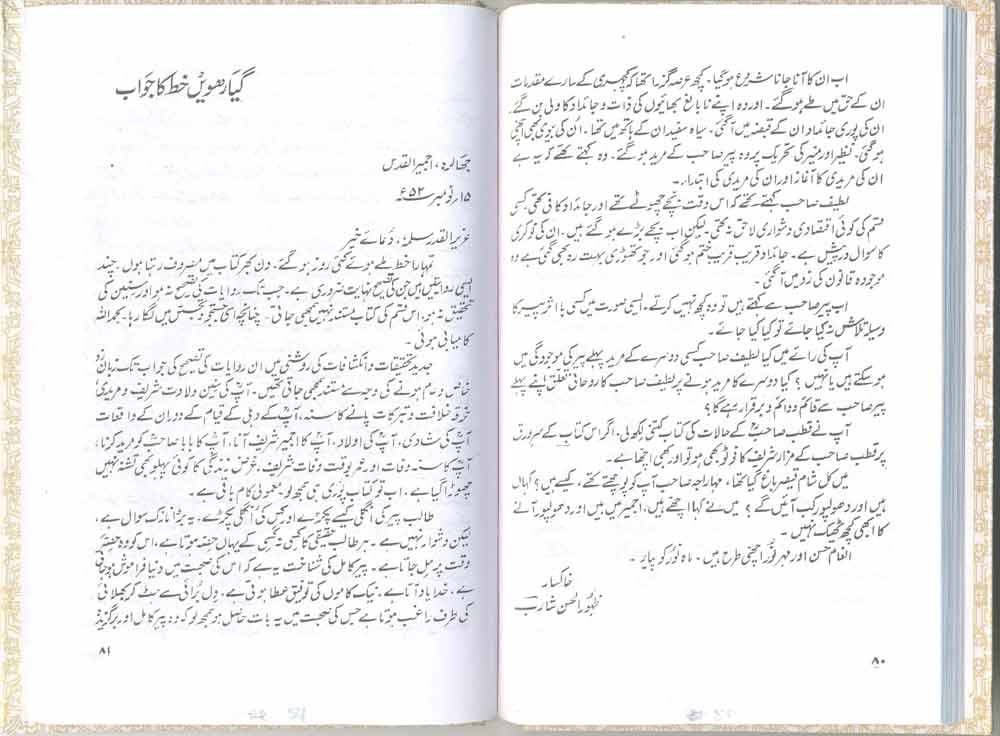 اب ان کا آنا جانا شروع ہوگیا۔ کچھ عرصہ گزرا تھا کہ کچہری کے سارے مقدمات
ان کے حق میں طے ہوگئے۔ اور وہ اپنے نابالغ بھائیوں کی ذات و جائداد کا ولی بن گئے
ان کی پوری جائداد ان کے قبضہ میں آگئی۔ سیاہ سفید ان کے ہاتھ میں تھا۔ اُن کی بیوی بھی اچھی
ہوگئی۔ نظیر اور منیر کی تحریک پر وہ پیر صاحب کے مرید ہو گئے۔ وہ کہتے تھے کہ یہ ہے
ان کی مریدی کا آغاز اور ان کی مریدی کی ابتداء۔
لطیف صاحب کہتے تھے کہ اس وقت بچے چھوٹے تھے اور جائداد کافی تھی کسی
قسم کی کوئی اقتصادی دشواری لاحق نہ تھی۔ لیکن اب بچے بڑے ہو گئے ہیں۔ ان کی نوکری
کا سوال درپیش ہے۔ جائداد قریب قریب ختم ہوگئی اور جو تھوڑی بہت رہ بھی گئی ہے وہ
موجودہ قانون کی زد میں آگئی۔
اب پیر صاحب سے کہتے ہیں تو وہ کچھ نہیں کرتے۔ ایسی صورت میں کسی با اثر پیر کا
وسیلہ تلاش نہ کیا جائے تو کیا کیا جائے۔
آپ کی رائے میں کیا لطیف صاحب کسی دوسرے کے مرید پہلے پیر کی موجودگی میں
ہو سکتے ہیں یا نہیں؟ کیا دوسرے کا مرید ہونے پر لطیف صاحب کا روحانی تعلق اپنے پہلے
پیر صاحب سے قائم و دائم و برقرار رہے گا؟
آپ نے قطب صاحبؒ کے حالات کی کتاب کتنی لکھ لی۔ اگر اس کتاب کے سرورق
پر قطب صاحب کے مزار شریف کا فوٹو بھی ہو تو اور بھی اچھا ہے۔
میں کل شام قیصر باغ گیا تھا، مہاراجہ صاحب آپ کو پوچھتے تھے، کیسے ہیں؟ کہاں
ہیں اور دھولپور کب آئیں گے؟ میں نے کہا اچھے ہیں، اجمیر میں ہیں اور دھولپور آنے
کا ابھی کچھ ٹھیک نہیں۔
انعام حسن اور مہر نور اچھی طرح ہیں۔ ماہ نور کو پیار۔
خاکسار
ظہور الحسن شارب
۸۰
گیارھویں خط کا جواب
جھالرہ، اجمیر القدس
۱۵ ر نومبر ۵۲ ؁ء
عزیز القدر سلمہٗ، دُعائے خیر
تمہارا خط ملے ہوئے کئی روز ہوگئے۔ دن بھر کتاب میں مصروف رہتا ہوں۔ چند
ایسی روایتیں ہیں جن کی تصحیح نہایت ضروری ہے۔ جب تک روایات کی تصحیح نہ ہو اور سنین کی
تحقیق نہ ہو، اس قسم کی کتاب مستند نہیں سمجھی جاتی۔ چنانچہ اسی جستجو و تجسس میں لگا رہا۔ بحمد اللہ
کامیابی ہوئی۔
جدید تحقیقات و انکشافات کی روشنی میں ان روایات کی تصحیح کی جو اب تک زبان زد
خاص و عام ہونے کی وجہ سے مستند سمجھی جاتی تھیں۔ آپ کی سنین ولادت شریف و مریدی
خرقہ خلافت و تبرکات پانے کا سنہ، آپؒ کے دہلی کے قیام کے دوران کے واقعات
آپؒ کی شادی، آپؒ کی اولاد، آپؒ کا اجمیر شریف آنا، آپ کا بابا صاحبؒ کو مرید کرنا،
آپ کا سنہ وفات اور عمر بوقت وفات شریف، غرض زندگی کا کوئی پہلو بھی تشنہ نہیں
چھوڑا گیا ہے، اب تو کتاب پوری ہی سمجھو۔ معمولی کام باقی ہے۔
طالب پیر کی انگلی کیسے پکڑے اور کس کی انگلی پکڑے۔ یہ بڑا نازک سوال ہے،
لیکن دشوار نہیں ہے۔ ہر طالب حقیقی کا کسی نہ کسی کے یہاں حصہ ہوتا ہے، اس کو وہ حصہ
وقت پر مل جاتا ہے۔ پیر کامل کی شناخت یہ ہے کہ اس کی صحبت میں دنیا فراموش ہو جاتی
ہے۔ خدا یاد آتا ہے۔ نیک کاموں کی توفیق عطا ہوتی ہے۔ دل برائی سے ہٹ کر بھلائی
کی طرف راغب ہوتا ہے جس کی صحبت میں یہ بات حاصل ہو سمجھ لو کہ وہ پیر کامل اور برگزیدہ
۸۱